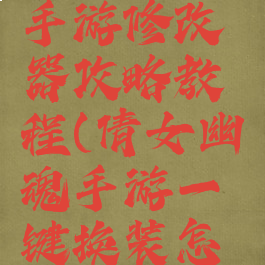 手游修改
器攻略教
程(倩女幽
魂手游一
键换装怎